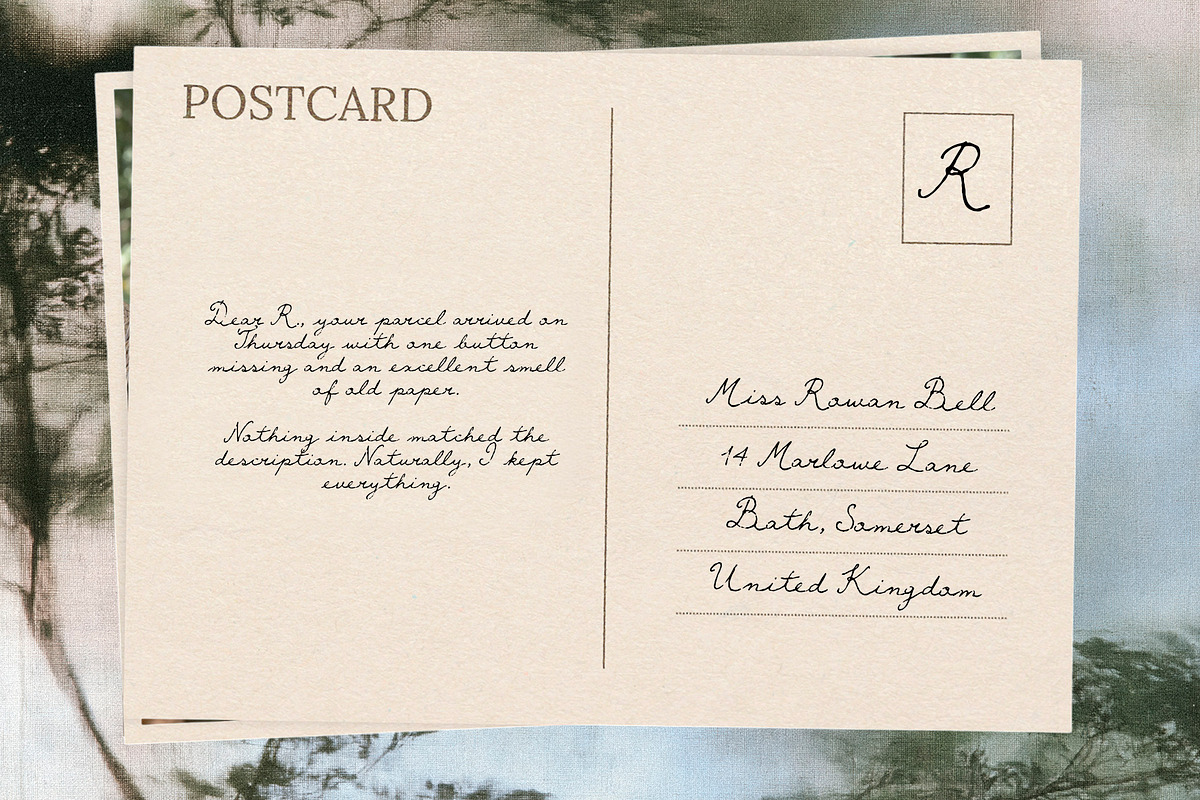 POSTCARD
R
Dear R., your parcel arrived on
Thursday with one button
missing and an excellent smell
of old paper.
Nothing inside matched the
description. Naturally, I kept
everything.
Miss Rowan Bell
14 Marlowe Lane
Bath, Somerset
United Kingdom